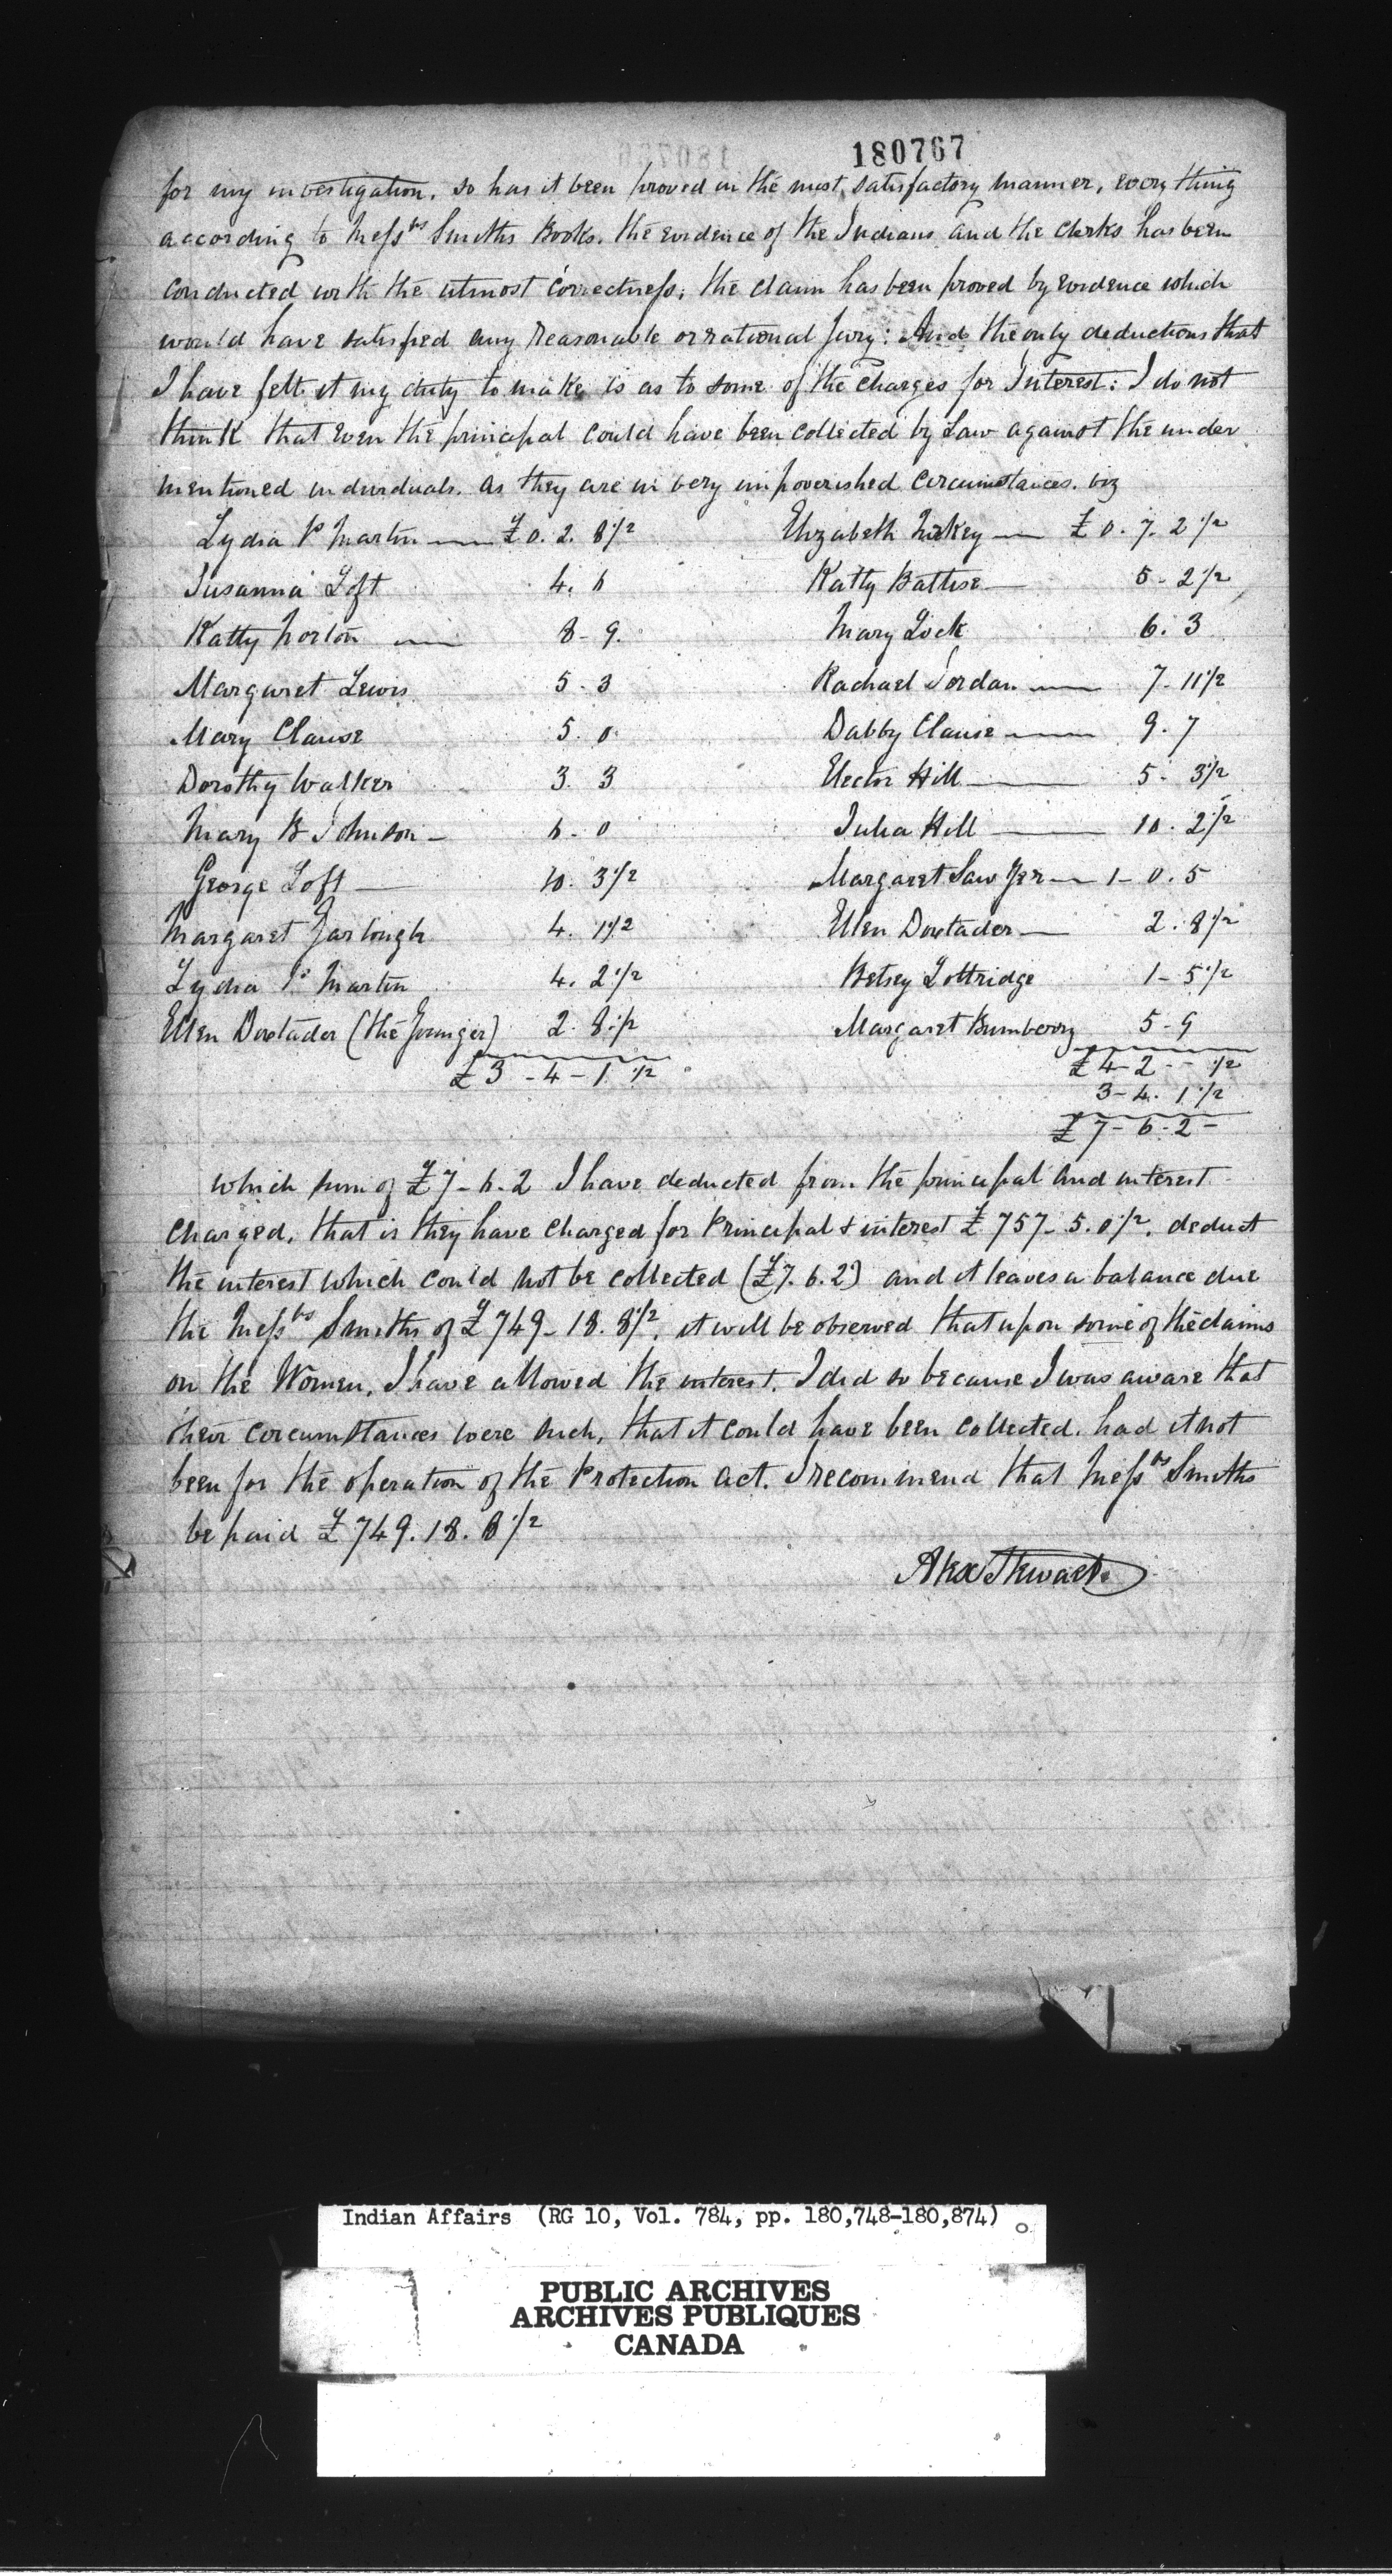 180767
for my investigation, so has it been proved in the most satisfactory manner, every thing
according to Messrs Smiths Books, the evidence of the Indians and the clerks has been
conducted with the utmost correctness; the claim has been proved by evidence which
would have satisfied any reasonable or rational Jury: And the only deductions that
I have felt it my duty to make is as to some of the Charges for Interest: I do not
think that even the principal could have been collected by Law against the under
mentioned individuals, as they are in very impoverished circumstances. viz
Lydia P Martin £0. 2. 8 1/2 Elizabeth £0. 7. 2 1/2
Susanna Loft 4. 6 Katty Battise 5 - 2 1/2
Katty Norton 8 - 9. Mary Lock 6. 3
Margaret Lewis 5 - 3 Rachael Jordan 7 - 11 1/2
Mary Clause 5. 0 Dabby Clause 9. 7
Dorothy Walker 3. 3 Elector Hill 5 - 3 1/2
Mary B Johnson 6 - 0 Julia Hill 10. 2 1/2
George Loft 10. 3 1/2 Margaret Sawyer 1 - 0. 5
Margaret Garlough 4. 1 1/2 Ellen Doxtader 2. 8 1/2
Lydia P Martin 4. 2 1/2 Betsey Lottridge 1 - 5 1/2
Ellen Doxtader (the Younger) 2. 8 1/2 Margaret Bumberry 5 - 9
£3 - 4 - 1 1/2 £4 - 2 - - 1/2
3 - 4. 1 1/2
£7 - 6 - 2 -
which sum of £7 - 6 - 2 I have deducted from the principal and interest
charged, that is they have charged for Principal & interest £757 - 5. 0 1/2. deduct
the interest which could not be collected (£7. 6. 2) and it leaves a balance due
the Messrs Smiths of £749 - 18. 8 1/2. it will be observed that upon some of the claims
on the Women, I have allowed the interest. I did so because I was aware that
their circumstances were such, that it could have been collected. had it not
been for the operation of the Protection act. I recommend that Messrs Smiths
be paid £749. 18. 8 1/2
Alex Stewart
Indian Affairs (RG 10, Vol. 784, pp. 180,748-180,874)
PUBLIC ARCHIVES
ARCHIVES PUBLIQUES
CANADA